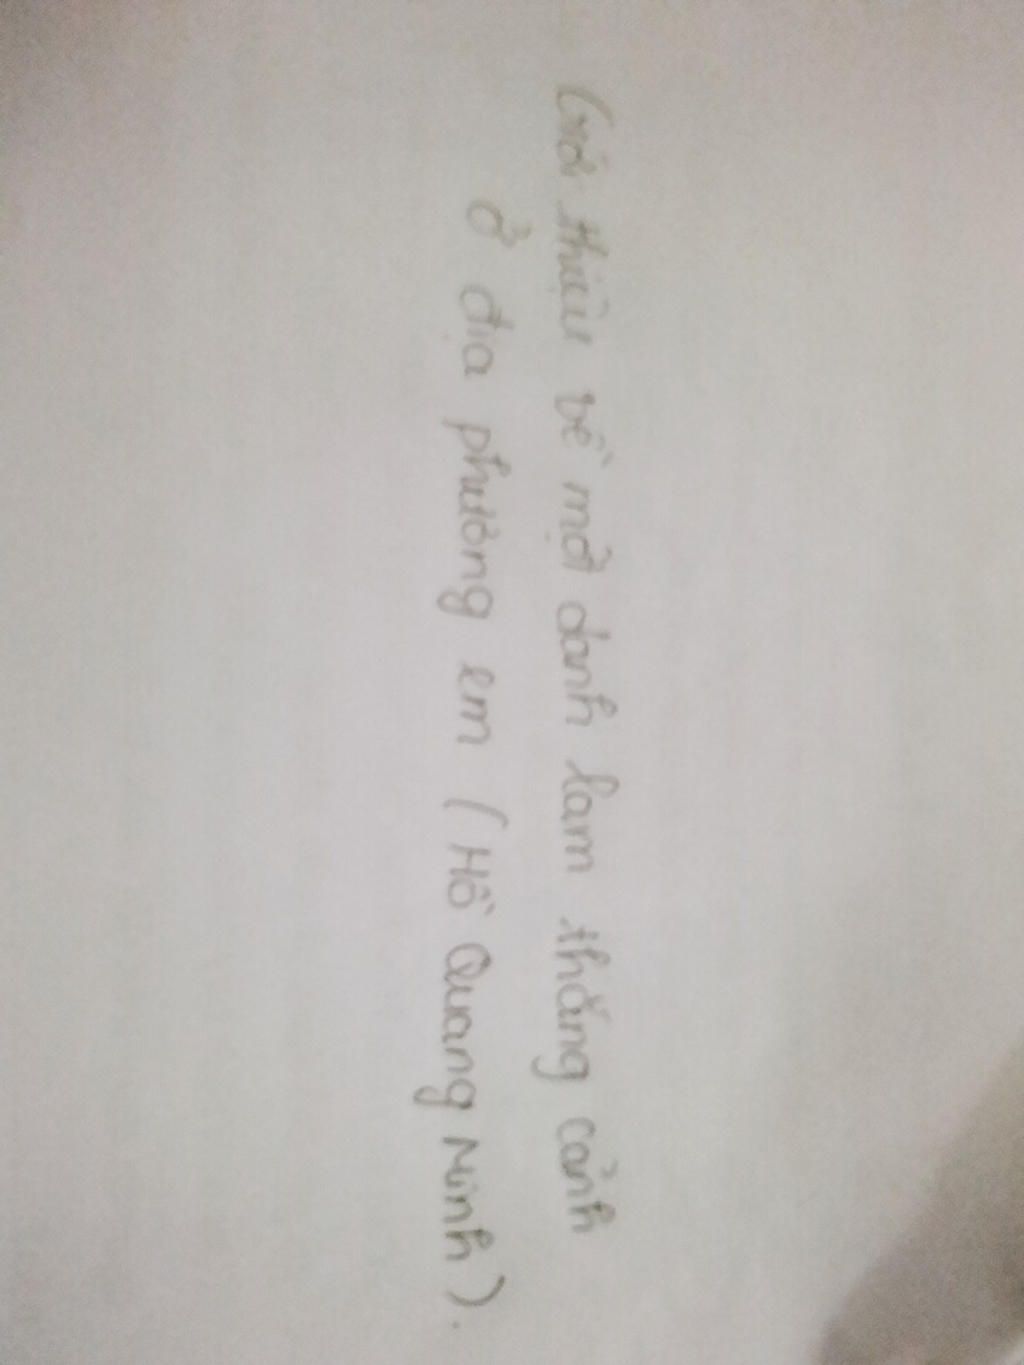 Giới thiệu về một danh lam thắng cảnh
ở địa phương em (Hồ Quang Minh).